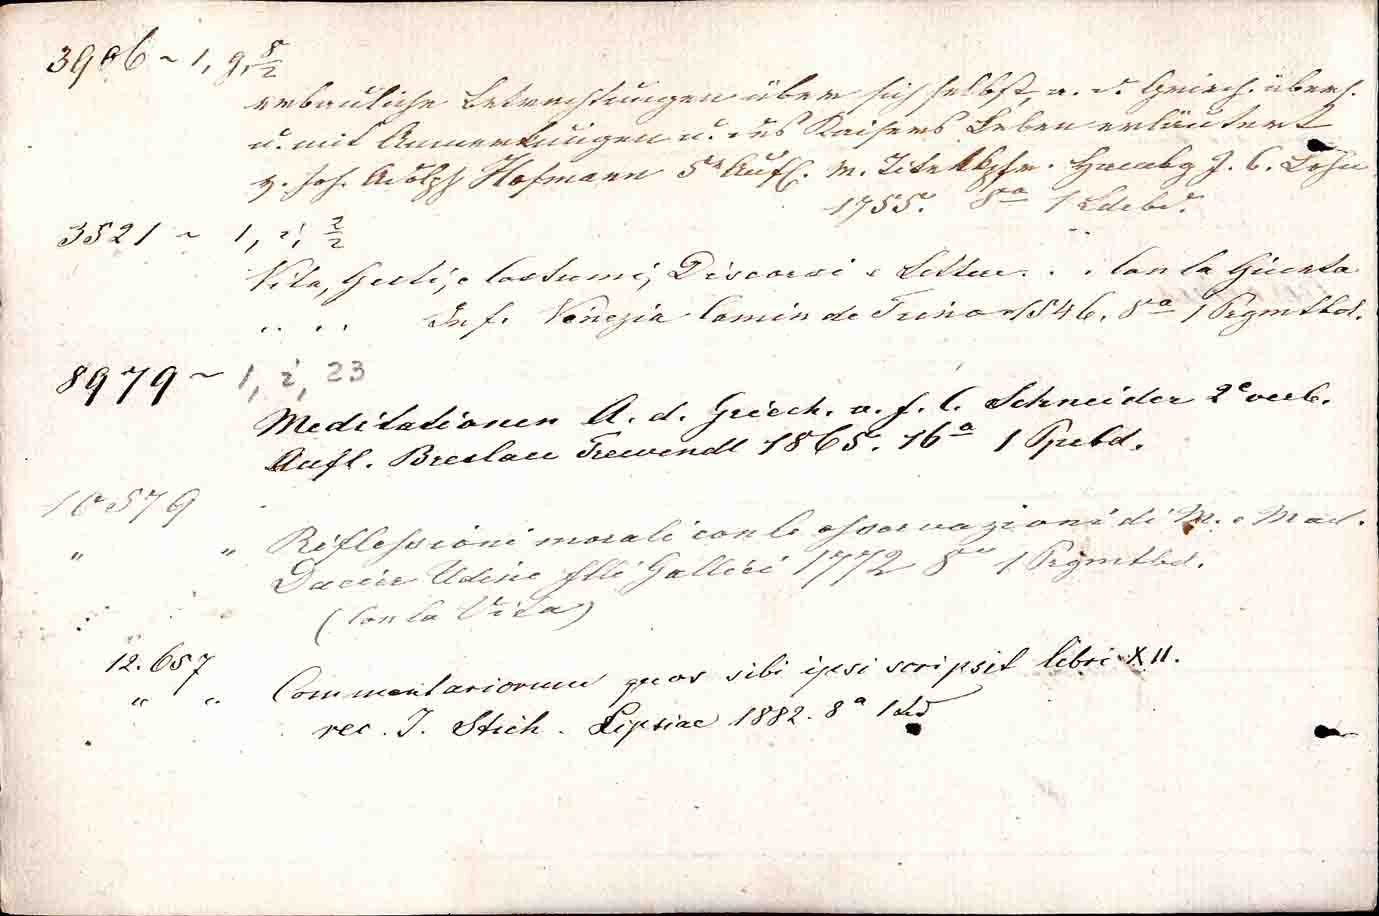 3906 ~ 1, g, 8/2
erbauliche Betrachtungen über sich selbst, a. d. Griech. übers.
u. mit Anmerkungen u. des Kaisers Leben erläutert
v. Joh. Adolph Hofmann 5e Aufl. m. Titelkpfr. Hambg J. C.
1755. 8a 1 Ldrbd.
3521 ~ 1, i, 2/2
Vita, Gesti, e Costumi, Discorsi e Lettere . . . Con la Giunta
. . . . Inf. Venezia Comin de Trino 1546. 8a 1 Prgmtbd.
8979 ~ 1, i, 23
Meditationen A. d. Griech. v. f. C. Schneider 2e verb.
Aufl. Breslau Trewendt 1865. 16a 1 Ppbd.
10579
" " Reflessioni morali con le osservazioni di M. e Mad.
Dacier Udine flli Gallici 1772 8a 1 Prgmtbd.
(Con la Vita)
12.657
" " Commentariorum quos sibi ipsi scripsit libri XII.
rec. I. Stich. Lipsiae 1882. 8a 1 Ld